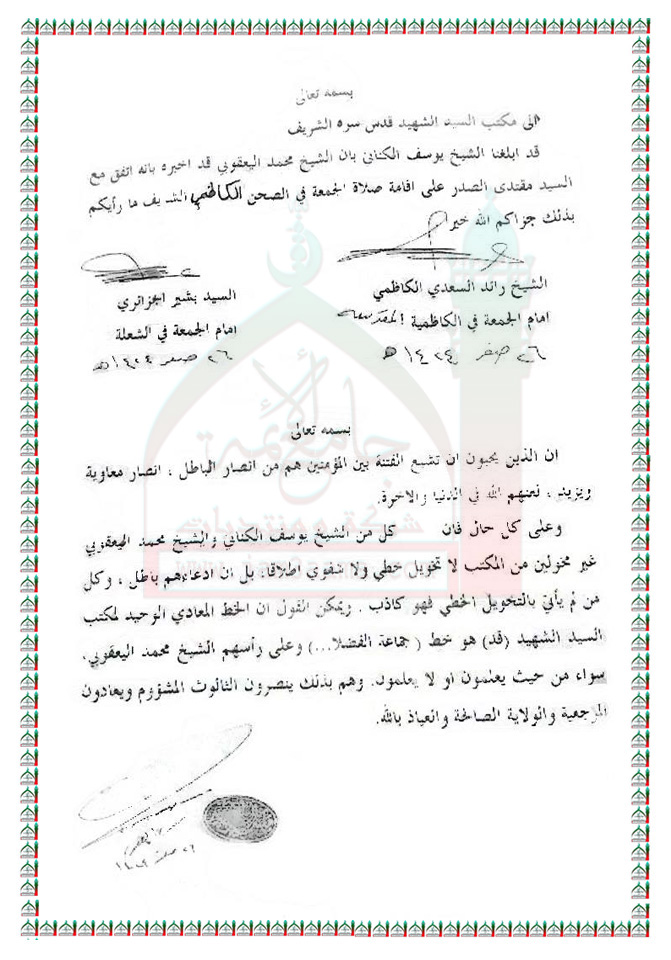 بسمه تعالى
الى مكتب السيد الشهيد قدس سره الشريف
قد ابلغنا الشيخ يوسف الكناني بان الشيخ محمد اليعقوبي قد اخبره بانه اتفق مع
السيد مقتدى الصدر على اقامة صلاة الجمعة في الصحن الكاظمي الشريف ما رأيكم
بذلك جزاكم الله خير
الشيخ رائد السعدي الكاظمي
امام الجمعة في الكاظمية المقدسة
٢٦ صفر ١٤٢٤ هـ
السيد بشير الجزائري
امام الجمعة في الشعلة
٢٦ صفر ١٤٢٤ هـ
بسمه تعالى
ان الذين يحبون ان تشيع الفتنة بين المؤمنين هم من انصار الباطل ، انصار معاوية
ويزيد ، لعنهم الله في الدنيا والاخرة.
وعلى كل حال فان كل من الشيخ يوسف الكناني والشيخ محمد اليعقوبي
غير مخولين من المكتب لا تخويل خطي ولا شفوي اطلاقا. بل ان ادعاءهم باطل ، وكل
من لم يأتي بالتخويل الخطي فهو كاذب . ويمكن القول ان الخط المعادي الوحيد لمكتب
السيد الشهيد (قد) هو خط ( جماعة الفضلا...) وعلى رأسهم الشيخ محمد اليعقوبي.
سواء من حيث يعلمون او لا يعلمون. وهم بذلك ينصرون الثالوث المشؤوم ويعادون
المرجعية والولاية الصالحة والعياذ بالله.
جامع الأئمة
شبكة ومنتديات